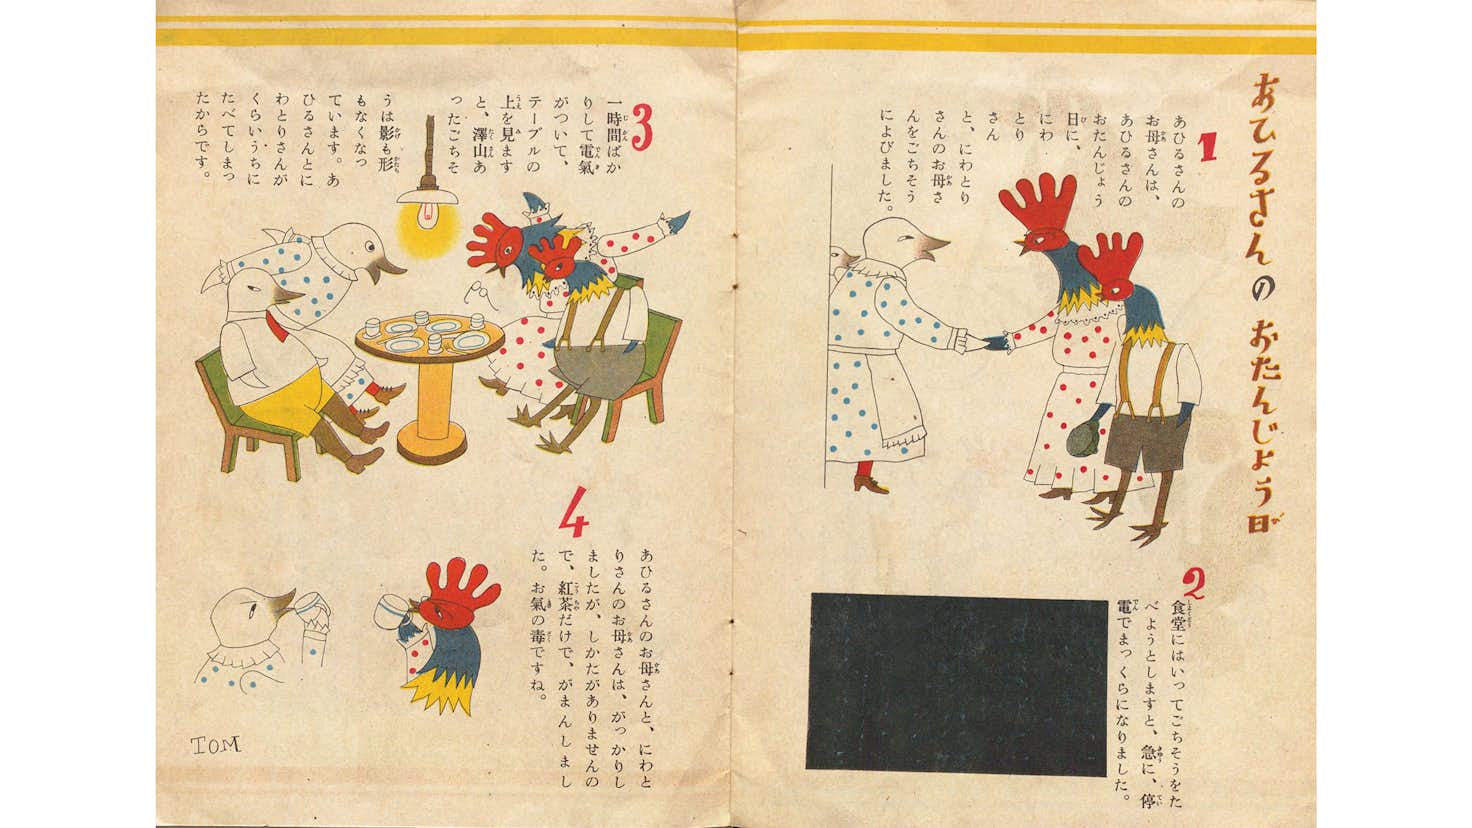 あひるさんの おたんじょう日
1
あひるさんの
お母さんは、
あひるさんの
おたんじょう
日に、
にわ
とり
さん
と、にわとり
さんのお母さ
んをごちそう
によびました。
2
食堂にはいってごちそうをた
べようとしますと、急に、停
電でまっくらになりました。
3
一時間ばか
りして電氣
がついて、
テーブルの
上を見ます
と、澤山あ
ったごちそ
うは影も形
もなくなっ
ています。あ
ひるさんとに
わとりさんが
くらいうちに
たべてしまっ
たからです。
4
あひるさんのお母さんと、にわと
りさんのお母さんは、がっかりし
ましたが、しかたがありませんの
で、紅茶だけで、がまんしまし
た。お氣の毒ですね。
TOM